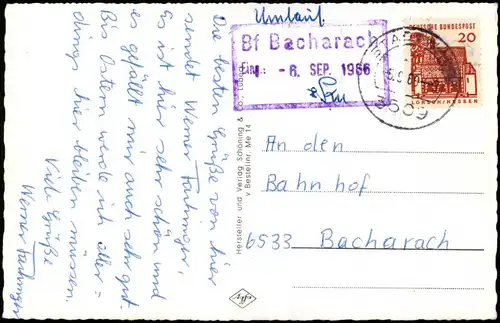 Die besten Grüße von hier
sendet Werner
Es ist hier sehr schön und
es gefällt mir auch sehr gut.
Bis Ostern werde ich aller=
dings hier bleiben müssen.
Viele Grüße
Werner
Hersteller und Verlag Schöning & Co., Lübeck
Bestellnr. Me 14
Umlauf
Bf Bacharach
Eing.: - 6. SEP. 1966
DEUTSCHE BUNDESPOST
20
LORSCH/HESSEN
3509
An den
Bahnhof
6533 Bacharach